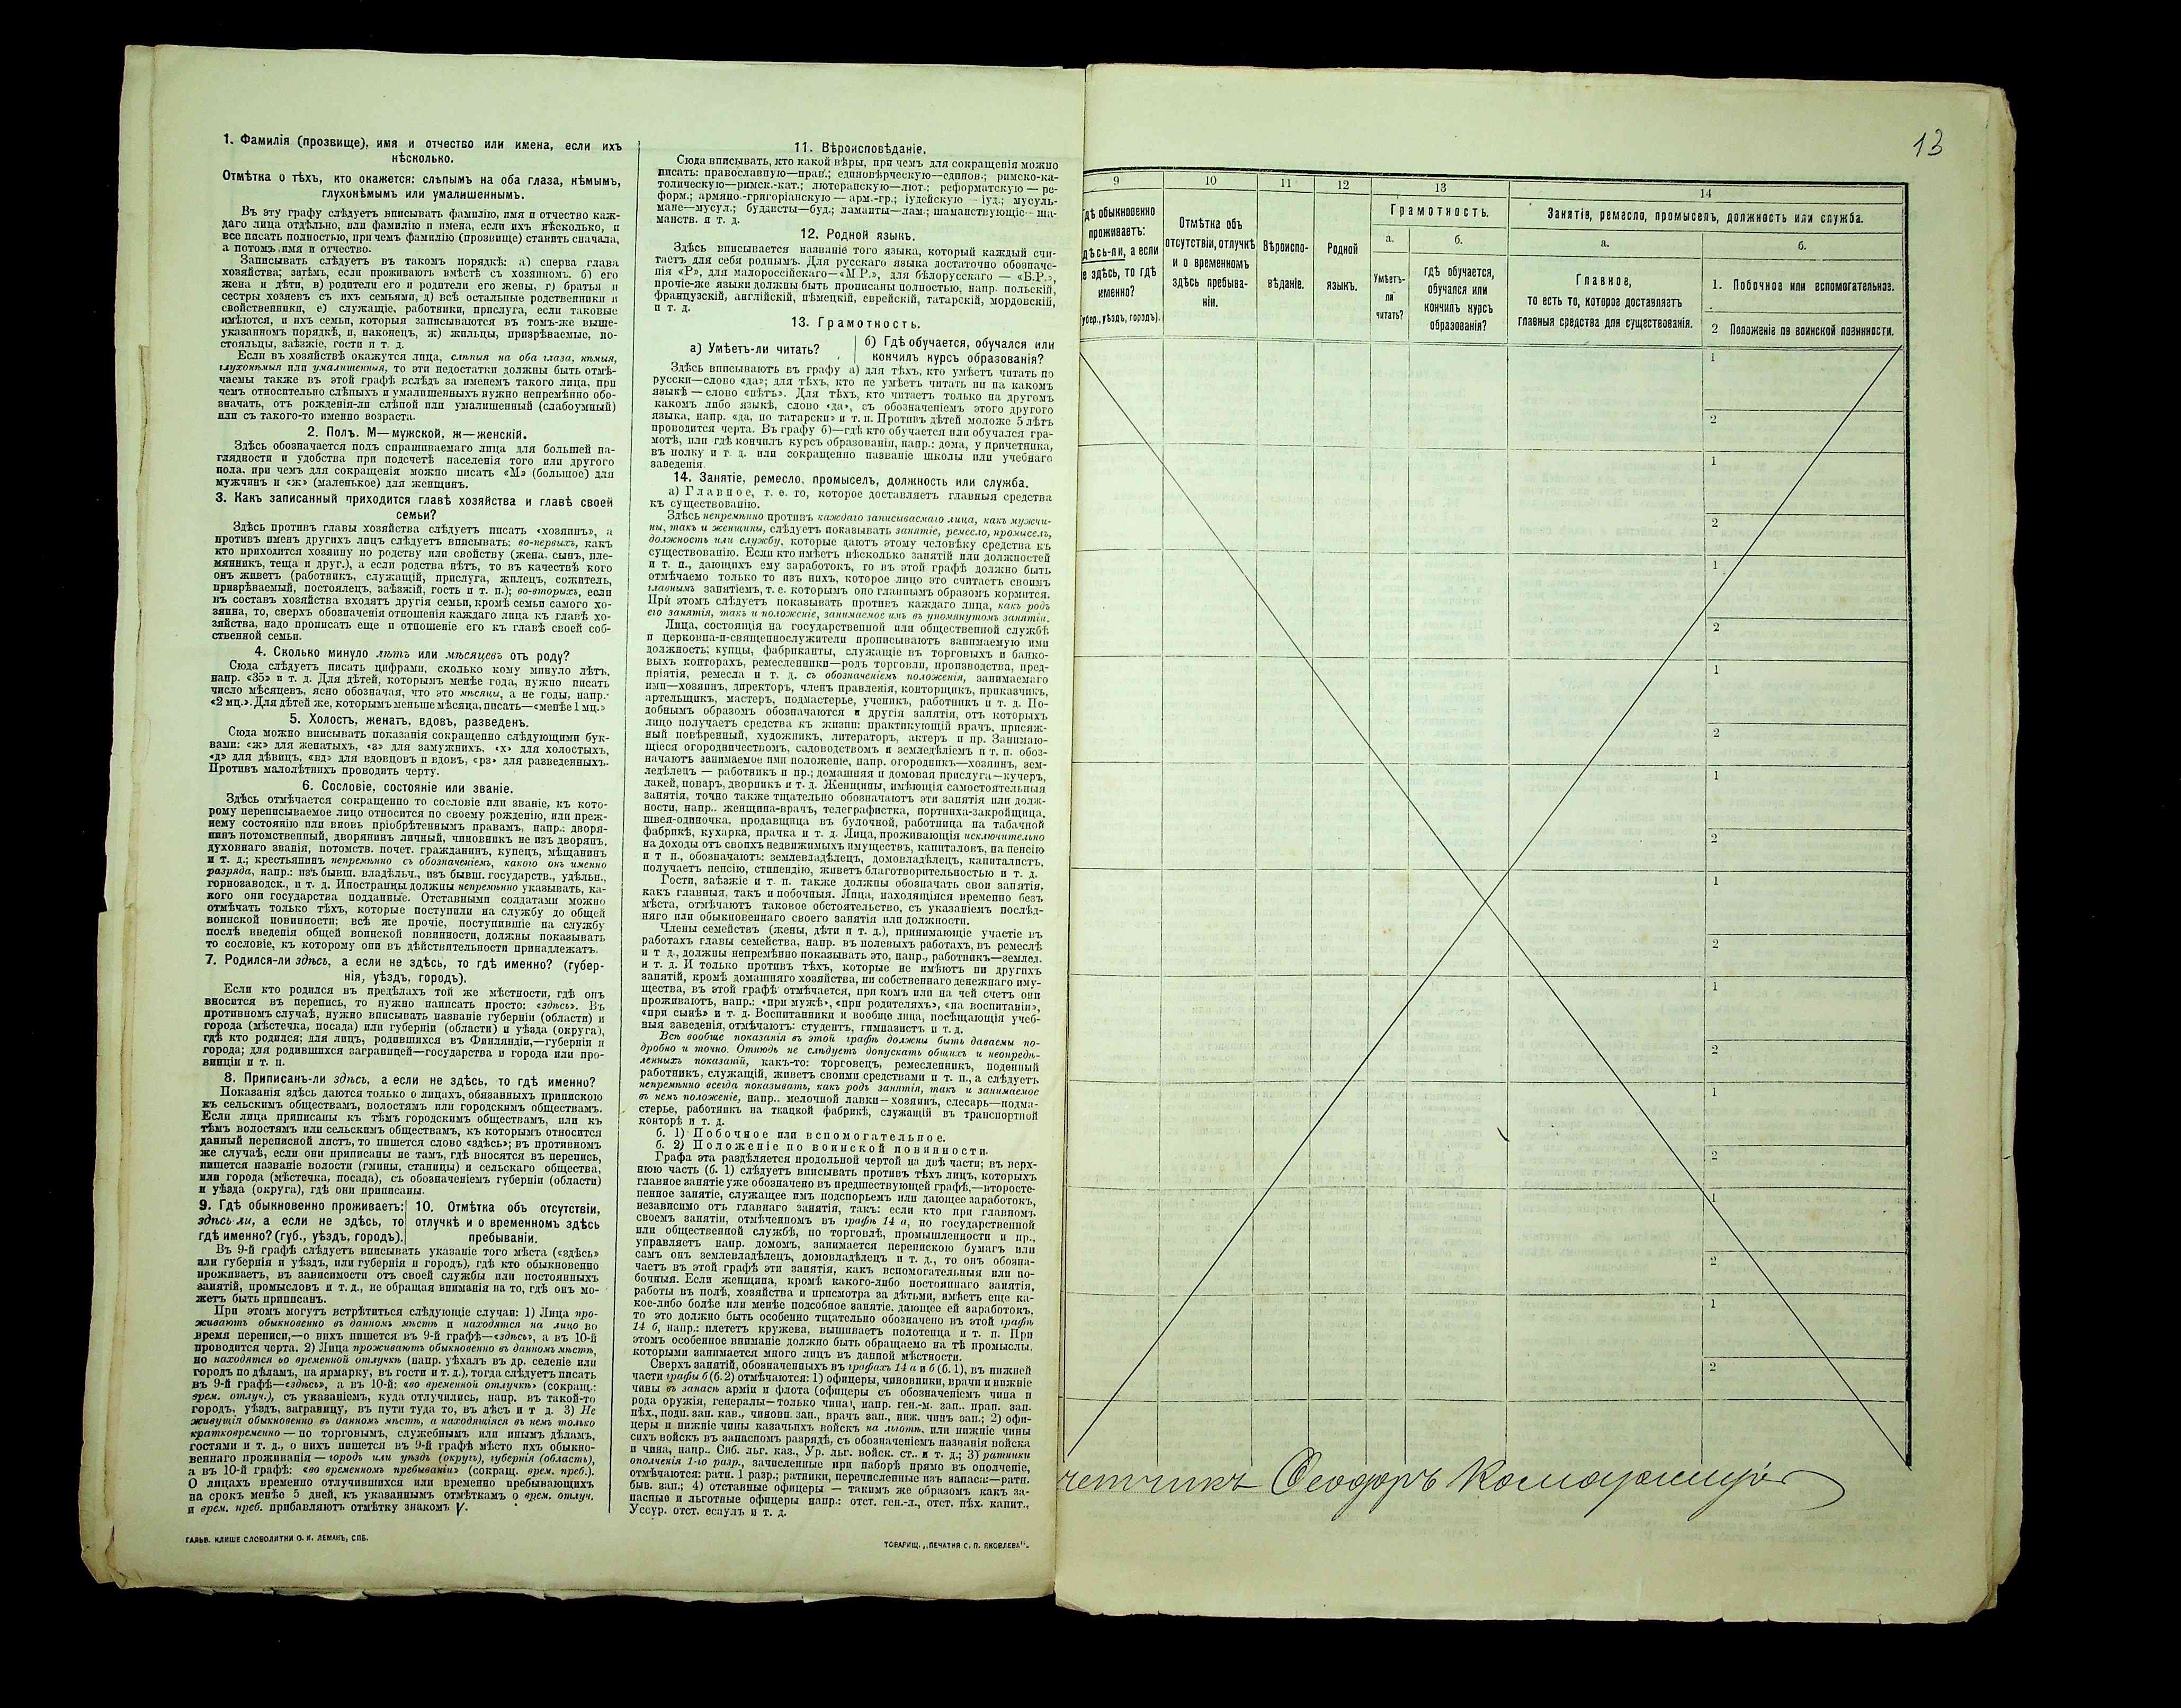 1. Фамилія (прозвище), имя и отчество или имена, если ихъ
нѣсколько.
Отмѣтка о тѣхъ, кто окажется: слѣпымъ на оба глаза, нѣмымъ,
глухонѣмымъ или умалишеннымъ.
Въ эту графу слѣдуетъ вписывать фамилію, имя и отчество каж-
даго лица отдѣльно, или фамилію и имена, если ихъ нѣсколько, и
все писать полностью, при чемъ фамилію (прозвище) ставить сначала,
а потомъ имя и отчество.
Записывать слѣдуетъ въ такомъ порядкѣ: а) сперва глава
хозяйства; затѣмъ, если проживаютъ вмѣстѣ съ хозяиномъ. б) его
жена и дѣти, в) родители его и родители его жены, г) братья и
сестры хозяевъ съ ихъ семьями, д) всѣ остальные родственники и
свойственники, е) служащіе, работники, прислуга, если таковые
имѣются, и ихъ семьи, которыя записываются въ томъ-же выше-
указанномъ порядкѣ, и, наконецъ, ж) жильцы, призрѣваемые, по-
стояльцы, заѣзжіе, гости и т. д.
Если въ хозяйствѣ окажутся лица, слѣпыя на оба глаза, нѣмыя,
глухонѣмыя или умалишенныя, то эти недостатки должны быть отмѣ-
чаемы также въ этой графѣ вслѣдъ за именемъ такого лица, при
чемъ относительно слѣпыхъ и умалишенныхъ нужно непремѣнно обо-
значать, отъ рожденія-ли слѣпой или умалишенный (слабоумный)
или съ такого-то именно возраста.
2. Полъ. М—мужской, ж—женскій.
Здѣсь обозначается полъ спрашиваемаго лица для большей на-
глядности и удобства при подсчетѣ населенія того или другого
пола, при чемъ для сокращенія можно писать «М» (большое) для
мужчинъ и «ж» (маленькое) для женщинъ.
3. Какъ записанный приходится главѣ хозяйства и главѣ своей
семьи?
Здѣсь противъ главы хозяйства слѣдуетъ писать «хозяинъ», а
противъ именъ другихъ лицъ слѣдуетъ вписывать: во-первыхъ, какъ
кто приходится хозяину по родству или свойству (жена, сынъ, пле-
мянникъ, теща и друг.), а если родства нѣтъ, то въ качествѣ кого
онъ живетъ (работникъ, служащій, прислуга, жилецъ, сожитель,
призрѣваемый, постоялецъ, заѣзжій, гость и т. п.); во-вторыхъ, если
въ составъ хозяйства входятъ другія семьи, кромѣ семьи самого хо-
зяина, то, сверхъ обозначенія отношенія каждаго лица къ главѣ хо-
зяйства, надо прописать еще и отношеніе его къ главѣ своей соб-
ственной семьи.
4. Сколько минуло лѣтъ или мѣсяцевъ отъ роду?
Сюда слѣдуетъ писать цифрами, сколько кому минуло лѣтъ,
напр. «35» и т. д. Для дѣтей, которымъ менѣе года, нужно писать
число мѣсяцевъ, ясно обозначая, что это мѣсяцы, а не годы, напр.·
«2 мц.». Для дѣтей же, которымъ меньше мѣсяца, писать—«менѣе 1 мц.»
5. Холостъ, женатъ, вдовъ, разведенъ.
Сюда можно вписывать показанія сокращенно слѣдующими бук-
вами: «ж» для женатыхъ, «з» для замужнихъ, «х» для холостыхъ,
«д» для дѣвицъ, «вд» для вдовцовъ и вдовъ, «рз» для разведенныхъ.
Противъ малолѣтнихъ проводить черту.
6. Сословіе, состояніе или званіе.
Здѣсь отмѣчается сокращенно то сословіе или званіе, къ кото-
рому переписываемое лицо относится по своему рожденію, или преж-
нему состоянію или вновь пріобрѣтеннымъ правамъ, напр.: дворя-
нинъ потомственный, дворянинъ личный, чиновникъ не изъ дворянъ,
духовнаго званія, потомств. почет. гражданинъ, купецъ, мѣщанинъ
и т. д.; крестьянинъ непремѣнно съ обозначеніемъ, какого онъ именно
разряда, напр.: изъ бывш. владѣльч., изъ бывш. государств., удѣльн.,
горнозаводск., и т. д. Иностранцы должны непремѣнно указывать, ка-
кого они государства подданные. Отставными солдатами можно
отмѣчать только тѣхъ, которые поступили на службу до общей
воинской повинности; всѣ же прочіе, поступившіе на службу
послѣ введенія общей воинской повинности, должны показывать
то сословіе, къ которому они въ дѣйствительности принадлежатъ.
7. Родился-ли здѣсь, а если не здѣсь, то гдѣ именно? (губер-
нія, уѣздъ, городъ).
Если кто родился въ предѣлахъ той же мѣстности, гдѣ онъ
вносится въ перепись, то нужно написать просто: «здѣсь». Въ
противномъ случаѣ, нужно вписывать названіе губерніи (области) и
города (мѣстечка, посада) или губерніи (области) и уѣзда (округа),
гдѣ кто родился; для лицъ, родившихся въ Финляндіи,—губерніи и
города; для родившихся заграницей—государства и города или про-
винціи и т. п.
8. Приписанъ-ли здѣсь, а если не здѣсь, то гдѣ именно?
Показанія здѣсь даются только о лицахъ, обязанныхъ припискою
къ сельскимъ обществамъ, волостямъ или городскимъ обществамъ.
Если лица приписаны къ тѣмъ городскимъ обществамъ, или къ
тѣмъ волостямъ или сельскимъ обществамъ, къ которымъ относится
данный переписной листъ, то пишется слово «здѣсь»; въ противномъ
же случаѣ, если они приписаны не тамъ, гдѣ вносятся въ перепись,
пишется названіе волости (гмины, станицы) и сельскаго общества,
или города (мѣстечка, посада), съ обозначеніемъ губерніи (области)
и уѣзда (округа), гдѣ они приписаны.
9. Гдѣ обыкновенно проживаетъ:
здѣсь-ли, а если не здѣсь, то
гдѣ именно? (губ., уѣздъ, городъ).
10. Отмѣтка объ отсутствіи,
отлучкѣ и о временномъ здѣсь
пребываніи.
Въ 9-й графѣ слѣдуетъ вписывать указаніе того мѣста («здѣсь»
или губернія и уѣздъ, или губернія и городъ), гдѣ кто обыкновенно
проживаетъ, въ зависимости отъ своей службы или постоянныхъ
занятій, промысловъ и т. д., не обращая вниманія на то, гдѣ онъ мо-
жетъ быть приписанъ.
При этомъ могутъ встрѣтиться слѣдующіе случаи: 1) Лица про-
живаютъ обыкновенно въ данномъ мѣстѣ и находятся на лицо во
время переписи,—о нихъ пишется въ 9-й графѣ—«здѣсь», а въ 10-й
проводится черта. 2) Лица проживаютъ обыкновенно въ данномъ мѣстѣ,
но находятся во временной отлучкѣ (напр. уѣхалъ въ др. селеніе или
городъ по дѣламъ, на ярмарку, въ гости и т. д.), тогда слѣдуетъ писать
въ 9-й графѣ—«здѣсь», а въ 10-й: «во временной отлучкѣ» (сокращ.:
врем. отлуч.), съ указаніемъ, куда отлучились, напр. въ такой-то
городъ, уѣздъ, заграницу, въ пути туда то, въ лѣсъ и т д. 3) Не
живущія обыкновенно въ данномъ мѣстѣ, а находящіяся въ немъ только
кратковременно — по торговымъ, служебнымъ или инымъ дѣламъ,
гостями и т. д., о нихъ пишется въ 9-й графѣ мѣсто ихъ обыкно-
веннаго проживанія — городъ или уѣздъ (округъ), губернія (область),
а въ 10-й графѣ: «во временномъ пребываніи» (сокращ. врем. преб.).
О лицахъ временно отлучившихся или временно пребывающихъ
на срокъ менѣе 5 дней, къ указаннымъ отмѣткамъ о врем. отлуч.
и врем. преб. прибавляютъ отмѣтку знакомъ V.
ГАЛЬВ. КЛИШЕ СЛОВОЛИТНИ О. И. ЛЕМАНЪ, СПБ.
11. Вѣроисповѣданіе.
Сюда вписывать, кто какой вѣры, при чемъ для сокращенія можно
писать: православную—прав.; единовѣрческую—единов.; римско-ка-
толическую—римск.-кат.; лютеранскую—лют.; реформатскую — ре-
форм.; армяно-григоріанскую — арм.-гр.; іудейскую — іуд.; мусуль-
мане—мусул.; буддисты—буд.; ламаиты—лам.; шаманствующіе—ша-
манств. и т. д.
12. Родной языкъ.
Здѣсь вписывается названіе того языка, который каждый счи-
таетъ для себя роднымъ. Для русскаго языка достаточно обозначе-
нія «Р», для малороссійскаго—«М.Р.», для бѣлорусскаго — «Б.Р.»,
прочіе-же языки должны быть прописаны полностью, напр. польскій,
французскій, англійскій, нѣмецкій, еврейскій, татарскій, мордовскій,
и т. д.
13. Грамотность.
а) Умѣетъ-ли читать?
б) Гдѣ обучается, обучался или
кончилъ курсъ образованія?
Здѣсь вписываютъ въ графу а) для тѣхъ, кто умѣетъ читать по
русски—слово «да»; для тѣхъ, кто не умѣетъ читать ни на какомъ
языкѣ — слово «нѣтъ». Для тѣхъ, кто читаетъ только на другомъ
какомъ либо языкѣ, слово «да», съ обозначеніемъ этого другого
языка, напр. «да, по татарски» и т. п. Противъ дѣтей моложе 5 лѣтъ
проводится черта. Въ графу б)—гдѣ кто обучается или обучался гра-
мотѣ, или гдѣ кончилъ курсъ образованія, напр.: дома, у причетника,
въ полку и т. д. или сокращенно названіе школы или учебнаго
заведенія.
14. Занятіе, ремесло, промыселъ, должность или служба.
а) Главное, т. е. то, которое доставляетъ главныя средства
къ существованію.
Здѣсь непремѣнно противъ каждаго записываемаго лица, какъ мужчи-
ны, такъ и женщины, слѣдуетъ показывать занятіе, ремесло, промыселъ,
должность или службу, которые даютъ этому человѣку средства къ
существованію. Если кто имѣетъ нѣсколько занятій или должностей
и т. п., дающихъ ему заработокъ, то въ этой графѣ должно быть
отмѣчаемо только то изъ нихъ, которое лицо это считаетъ своимъ
главнымъ занятіемъ, т. е. которымъ оно главнымъ образомъ кормится.
При этомъ слѣдуетъ показывать противъ каждаго лица, какъ родъ
его занятія, такъ и положеніе, занимаемое имъ въ упомянутомъ занятіи.
Лица, состоящія на государственной или общественной службѣ
и церковна-и-священнослужители прописываютъ занимаемую ими
должность; купцы, фабриканты, служащіе въ торговыхъ и банко-
выхъ конторахъ, ремесленники—родъ торговли, производства, пред-
пріятія, ремесла и т. д. съ обозначеніемъ положенія, занимаемаго
ими—хозяинъ, директоръ, членъ правленія, конторщикъ, приказчикъ,
артельщикъ, мастеръ, подмастерье, ученикъ, работникъ и т. д. По-
добнымъ образомъ обозначаются и другія занятія, отъ которыхъ
лицо получаетъ средства къ жизни: практикующій врачъ, присяж-
ный повѣренный, художникъ, литераторъ, актеръ и пр. Занимаю-
щіеся огородничествомъ, садоводствомъ и земледѣліемъ и т. п. обоз-
начаютъ занимаемое ими положеніе, напр. огородникъ—хозяинъ, зем-
ледѣлецъ — работникъ и пр.; домашняя и домовая прислуга—кучеръ,
лакей, поваръ, дворникъ и т. д. Женщины, имѣющія самостоятельныя
занятія, точно также тщательно обозначаютъ эти занятія или долж-
ности, напр.. женщина-врачъ, телеграфистка, портниха-закройщица,
швея-одиночка, продавщица въ булочной, работница на табачной
фабрикѣ, кухарка, прачка и т. д. Лица, проживающія исключительно
на доходы отъ своихъ недвижимыхъ имуществъ, капиталовъ, на пенсію
и т п., обозначаютъ: землевладѣлецъ, домовладѣлецъ, капиталистъ,
получаетъ пенсію, стипендію, живетъ благотворительностью и т. д.
Гости, заѣзжіе и т. п. также должны обозначать свои занятія,
какъ главныя, такъ и побочныя. Лица, находящіяся временно безъ
мѣста, отмѣчаютъ таковое обстоятельство, съ указаніемъ послѣд-
няго или обыкновеннаго своего занятія или должности.
Члены семействъ (жены, дѣти и т. д.), принимающіе участіе въ
работахъ главы семейства, напр. въ полевыхъ работахъ, въ ремеслѣ
и т д., должны непремѣнно показывать это, напр., работникъ—землед.
и т. д. И только противъ тѣхъ, которые не имѣютъ ни другихъ
занятій, кромѣ домашняго хозяйства, ни собственнаго денежнаго иму-
щества, въ этой графѣ отмѣчается, при комъ или на чей счетъ они
проживаютъ, напр.: «при мужѣ», «при родителяхъ», «на воспитаніи»,
«при сынѣ» и т. д. Воспитанники и вообще лица, посѣщающія учеб-
ныя заведенія, отмѣчаютъ: студентъ, гимназистъ и т. д.
Всѣ вообще показанія въ этой графѣ должны быть даваемы по-
дробно и точно. Отнюдь не слѣдуетъ допускать общихъ и неопредѣ-
ленныхъ показаній, какъ-то: торговецъ, ремесленникъ, поденный
работникъ, служащій, живетъ своими средствами и т. п., а слѣдуетъ
непремѣнно всегда показывать, какъ родъ занятія, такъ и занимаемое
въ немъ положеніе, напр.. мелочной лавки—хозяинъ, слесарь—подма-
стерье, работникъ на ткацкой фабрикѣ, служащій въ транспортной
конторѣ и т. д.
б. 1) Побочное или вспомогательное.
б. 2) Положеніе по воинской повинности.
Графа эта раздѣляется продольной чертой на двѣ части; въ верх-
нюю часть (б. 1) слѣдуетъ вписывать противъ тѣхъ лицъ, которыхъ
главное занятіе уже обозначено въ предшествующей графѣ,—второсте-
пенное занятіе, служащее имъ подспорьемъ или дающее заработокъ,
независимо отъ главнаго занятія, такъ: если кто при главномъ
своемъ занятіи, отмѣченномъ въ графѣ 14 а, по государственной
или общественной службѣ, по торговлѣ, промышленности и пр.,
управляетъ напр. домомъ, занимается перепискою бумагъ или
самъ онъ землевладѣлецъ, домовладѣлецъ и т. д., то онъ обозна-
чаетъ въ этой графѣ эти занятія, какъ вспомогательныя или по-
бочныя. Если женщина, кромѣ какого-либо постояннаго занятія,
работы въ полѣ, хозяйства и присмотра за дѣтьми, имѣетъ еще ка-
кое-либо болѣе или менѣе подсобное занятіе, дающее ей заработокъ,
то это должно быть особенно тщательно обозначено въ этой графѣ
14 б, напр.: плететъ кружева, вышиваетъ полотенца и т. п. При
этомъ особенное вниманіе должно быть обращаемо на тѣ промыслы,
которыми занимается много лицъ въ данной мѣстности.
Сверхъ занятій, обозначенныхъ въ графахъ 14 а и б (б. 1), въ нижней
части графы б (б. 2) отмѣчаются: 1) офицеры, чиновники, врачи и нижніе
чины въ запасѣ арміи и флота (офицеры съ обозначеніемъ чина и
рода оружія, генералы—только чина), напр. ген.-м. зап.. прап. зап.
пѣх., подп. зап. кав., чиновн. зап., врачъ зап., ниж. чинъ зап.; 2) офи-
церы и нижніе чины казачьихъ войскъ на льготѣ, или нижніе чины
сихъ войскъ въ запасномъ разрядѣ, съ обозначеніемъ названія войска
и чина, напр.. Сиб. льг. каз., Ур. льг. войск. ст.. и т. д.; 3) ратники
ополченія 1-го разр., зачисленные при наборѣ прямо въ ополченіе,
отмѣчаются: ратн. 1 разр.; ратники, перечисленные изъ запаса:—ратн.
быв. зап.; 4) отставные офицеры — такимъ же образомъ какъ за-
пасные и льготные офицеры напр.: отст. ген.-л., отст. пѣх. капит.,
Уссур. отст. есаулъ и т. д.
ТОВАРИЩ. „ПЕЧАТНЯ С. П. ЯКОВЛЕВА".
13
9
10
11
12
13
14
дѣ обыкновенно
проживаетъ:
дѣсь-ли, а если
е здѣсь, то гдѣ
именно?
губер., уѣздъ, городъ).
Отмѣтка объ
отсутствіи, отлучкѣ
и о временномъ
здѣсь пребыва-
ніи.
Вѣроиспо-
вѣданіе.
Родной
языкъ.
Грамотность.
а.
Умѣетъ-
ли
читать?
б.
гдѣ обучается,
обучался или
кончилъ курсъ
образованія?
Занятіе, ремесло, промыселъ, должность или служба.
а.
Главное,
то есть то, которое доставляетъ
главныя средства для существованія.
б.
1. Побочное или вспомогательное.
2 Положеніе по воинской повинности.
1
2
1
2
1
2
1
2
1
2
1
2
1
2
1
2
1
2
1
2
четчикъ Ѳеодоръ